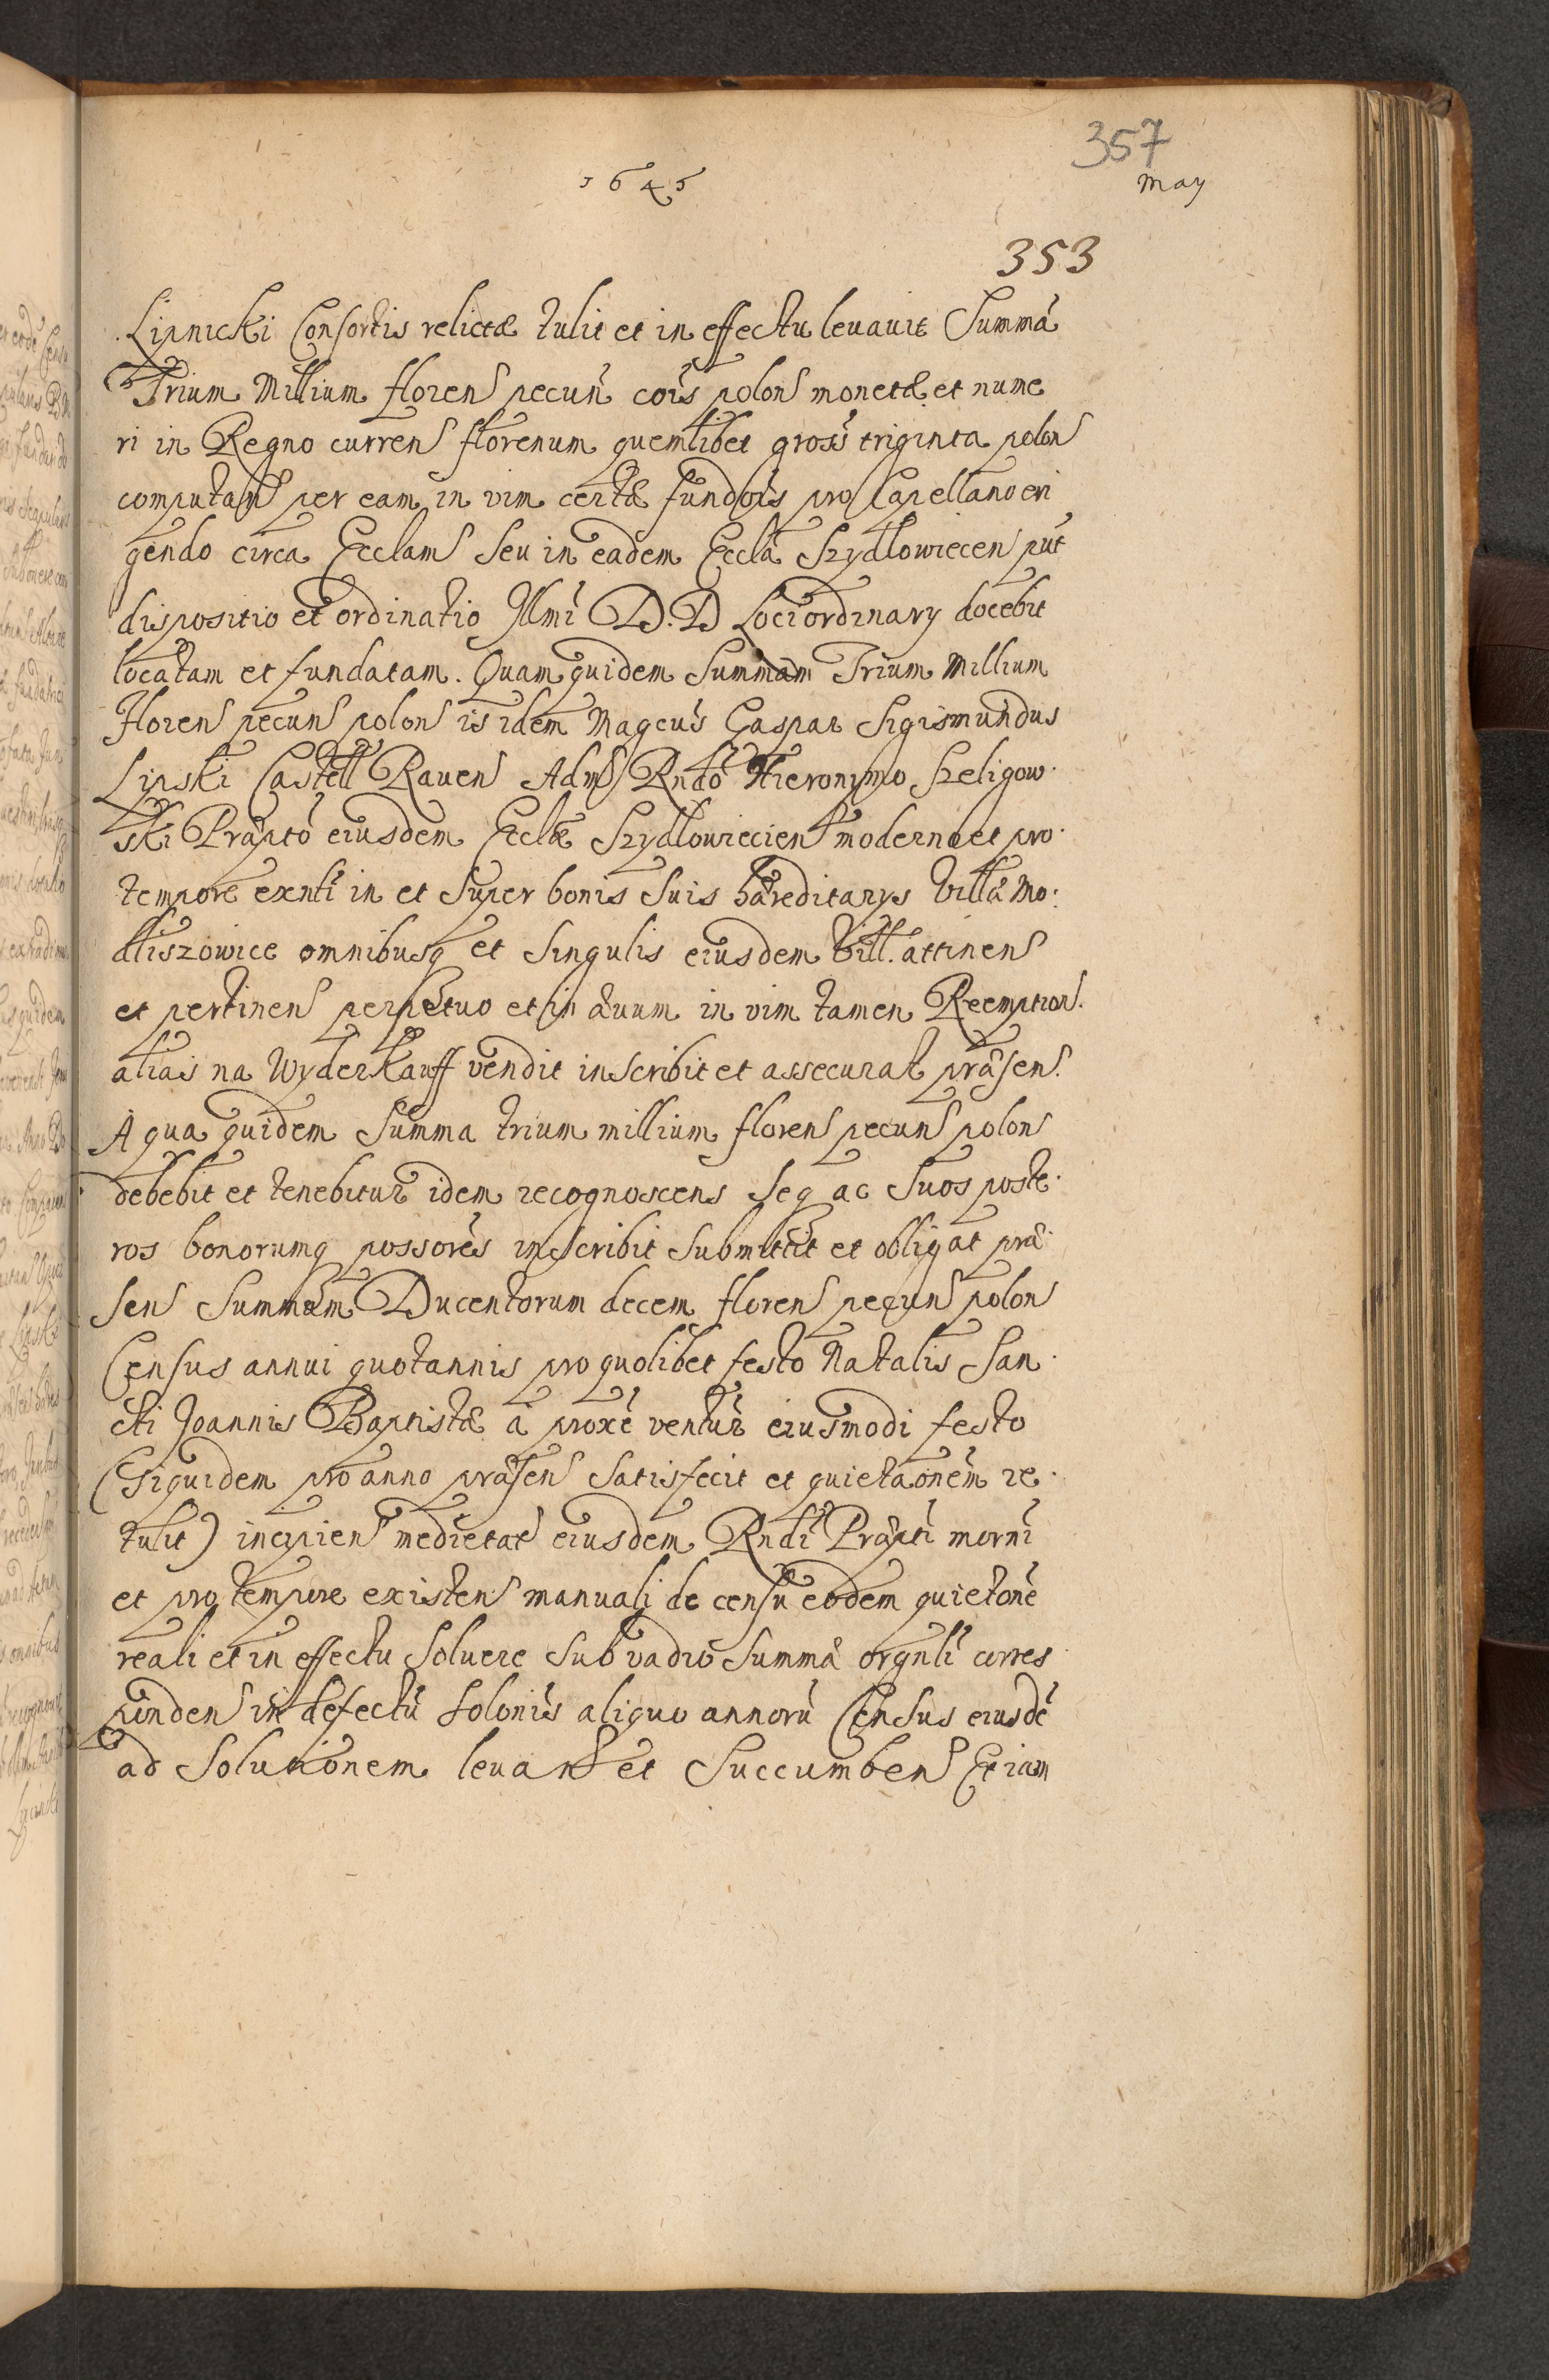 357
1645
May
353
Lipnicki Consortis relictæ tulit et in effectu leuauit Summã
Trium Millium floren pecun̄ cois̄ polon monetæ et nume
ri in Regno curren florenum quemlibet gross̄ triginta polon
computan per eam in vim certæ fundois̄ pro Capellano eri
gendo circa Ecclam seu in eadem Eccla Szydlowiecen put̄
dispositio et ordinatio Illmi D. D Loci ordinary docebit
locatam et fundatam. Quam quidem Summam Trium Millium
Floren pecun polon is idem Magcus Caspar Sigismundus
Lipski Castell Rauen Adm Rndo Hieronymo Szeligow
ski Præpto eiusdem Ecclæ Szydlowiecien moderno et pro
tempore exnti in et super bonis suis hæreditarys Villa Mo:
dliszowice omnibusq et singulis eiusdem Vill. attinen
et pertinen perpetuo et in æuum in vim tamen Reemption.
alias na Wyderkauff vendit inscribit et assecurat præsen.
A qua quidem Summa trium millium floren pecun polon
debebit et tenebitur idem recognoscens seq ac suos poste
ros bonorumq possores inscribit submittit et obligat præ
sen Summam Ducentorum decem floren pecun polon
Census annui quotannis pro quolibet festo Natalis San
cti Joannis Baptistæ a proxe ventur eiusmodi festo
(Siquidem pro anno præsen satisfecit et quietaonem re
tulit) incipien medietat eiusdem Rndi Præpti morni
et pro tempore existen manuali de censu eodem quietone
reali et in effectu soluere sub vadio summæ orgnli corres
ponden in defectu solonis aliquo annoru Census eiusde
ad solutionem leuan et Succumben Etiam